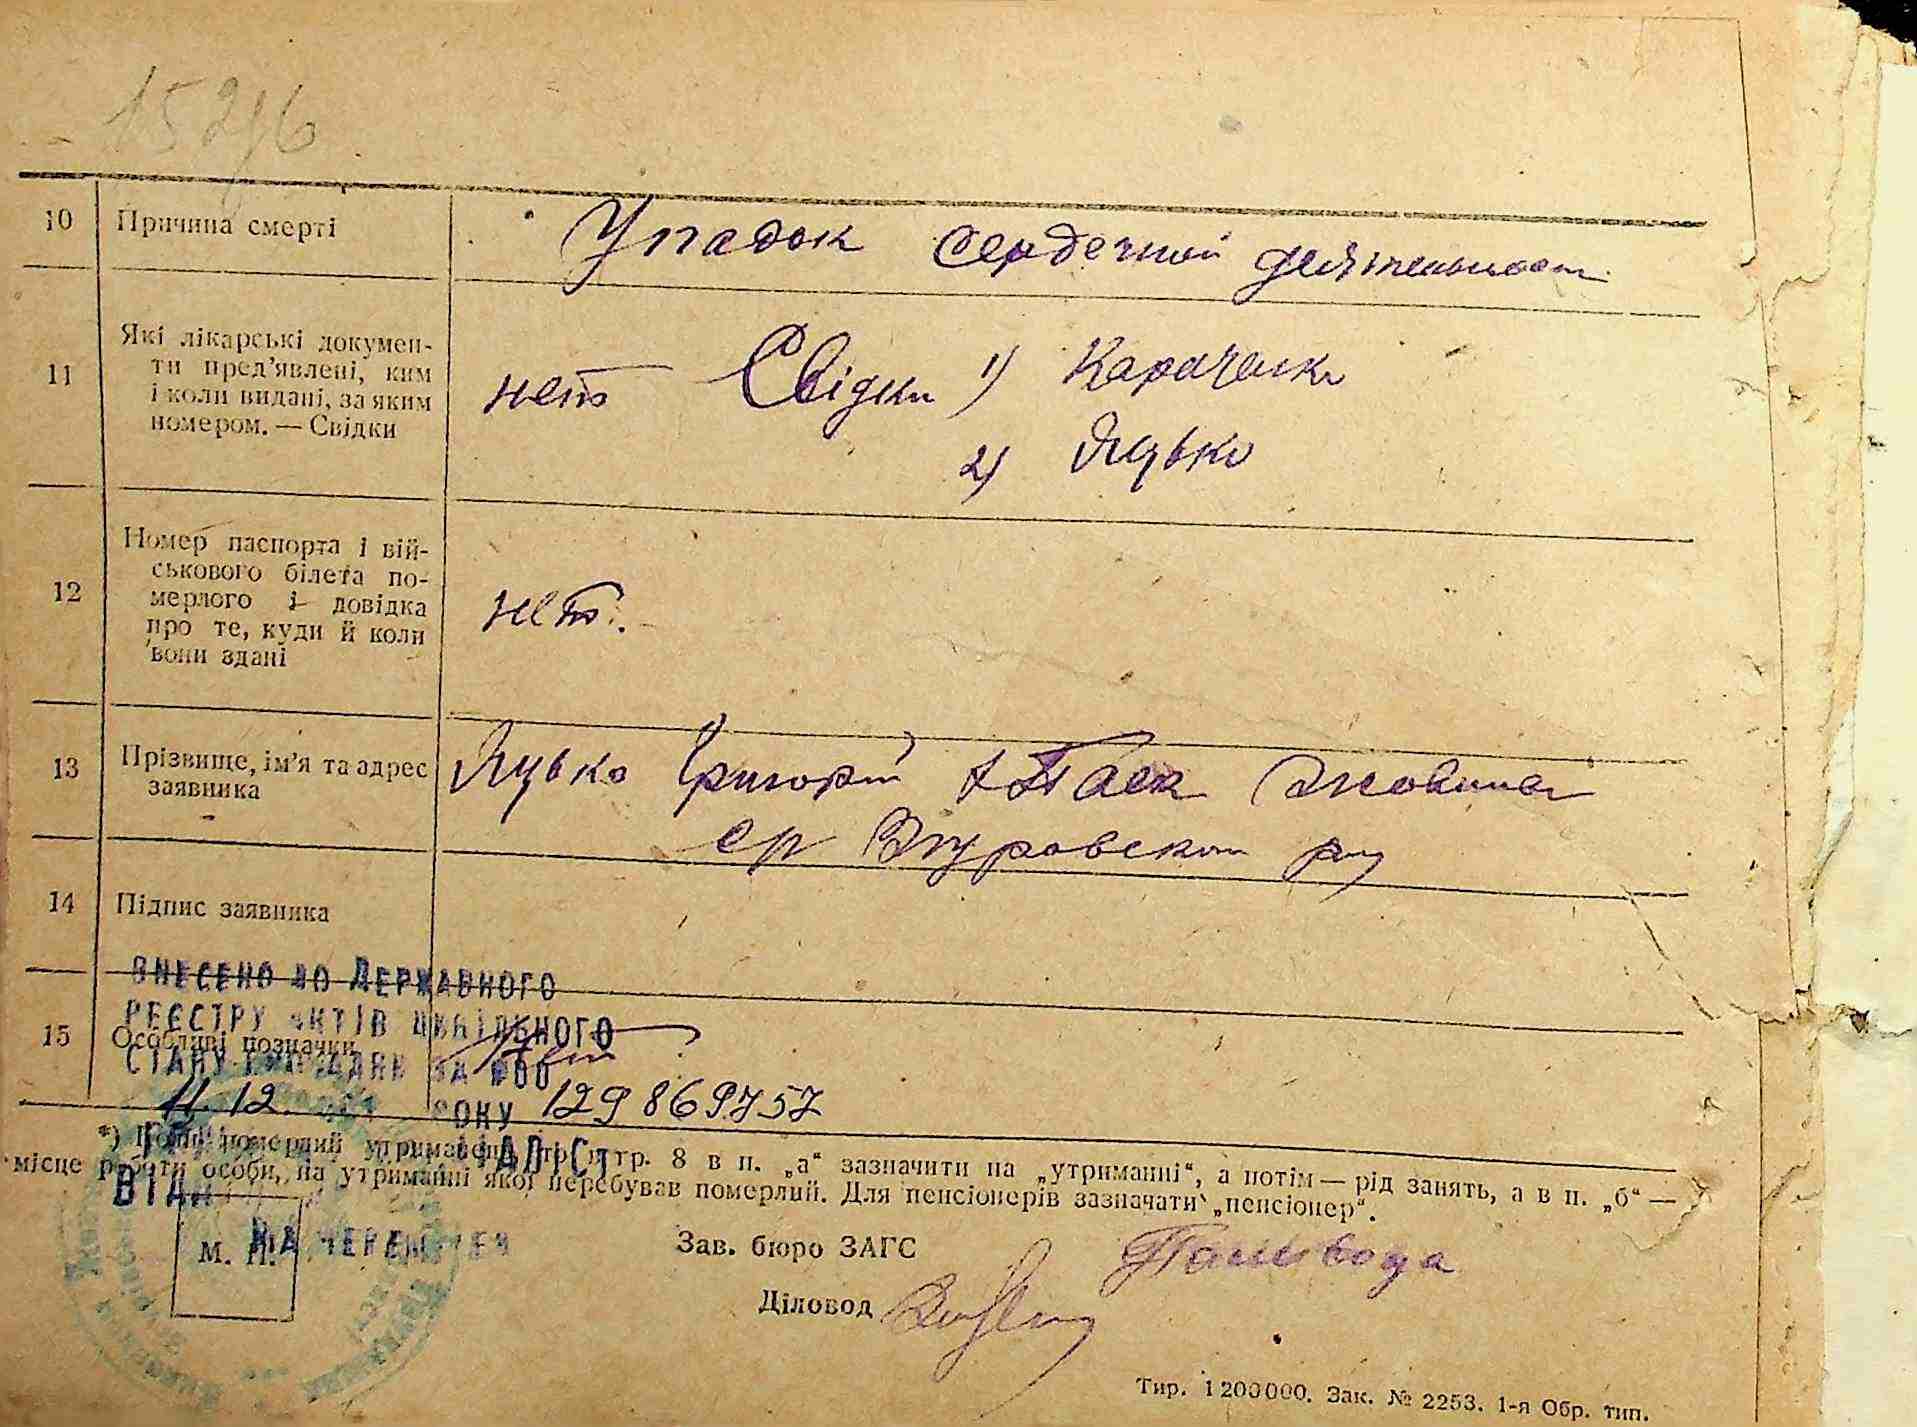 15246
10 Причина смерті Упадок сердечной деятельност
11 Які лікарські докумен-
ти пред'явлені, ким
і коли видані, за яким
номером. — Свідки
нет Свідки 1)
2) Яцько
12 Номер паспорта і вій-
ськового білета по-
мерлого і довідка
про те, куди й коли
вони здані
нет.
13 Прізвище, ім'я та адрес
заявника
Яцько Григорій
ср Згуровском
14 Підпис заявника
ВНЕСЕНО ДО ДЕРЖАВНОГО
РЕЄСТРУ АКТІВ ЦИВІЛЬНОГО
15 Особливі позначки
СТАНУ ГРОМАДЯН ЗА №00
11.12. РОКУ 129869757
*) Коли померлий утриманець, то в гр. 8 в п. „а“ зазначити на „утриманні“, а потім — рід занять, а в п. „б“ —
місце роботи особи, на утриманні якої перебував померлий. Для пенсіонерів зазначати „пенсіонер“.
М. П.
Зав. бюро ЗАГС
Діловод
Тир. 1200000. Зак. № 2253. 1-я Обр. тип.